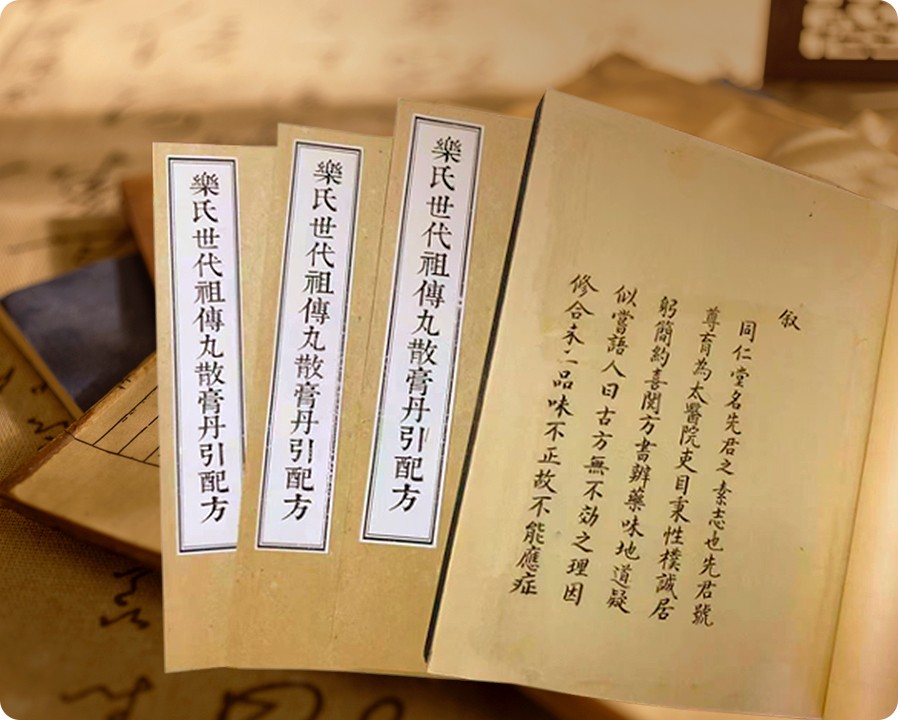 叙
同仁堂名先君之素志也先君號
尊育為太醫院吏目秉性樸誠居
躬簡約喜閱方書辨藥味地道疑
似嘗語人曰古方無不効之理因
修合未二品味不正故不能應症
樂氏世代祖傳丸散膏丹引配方
樂氏世代祖傳丸散膏丹引配方
樂氏世代祖傳丸散膏丹引配方